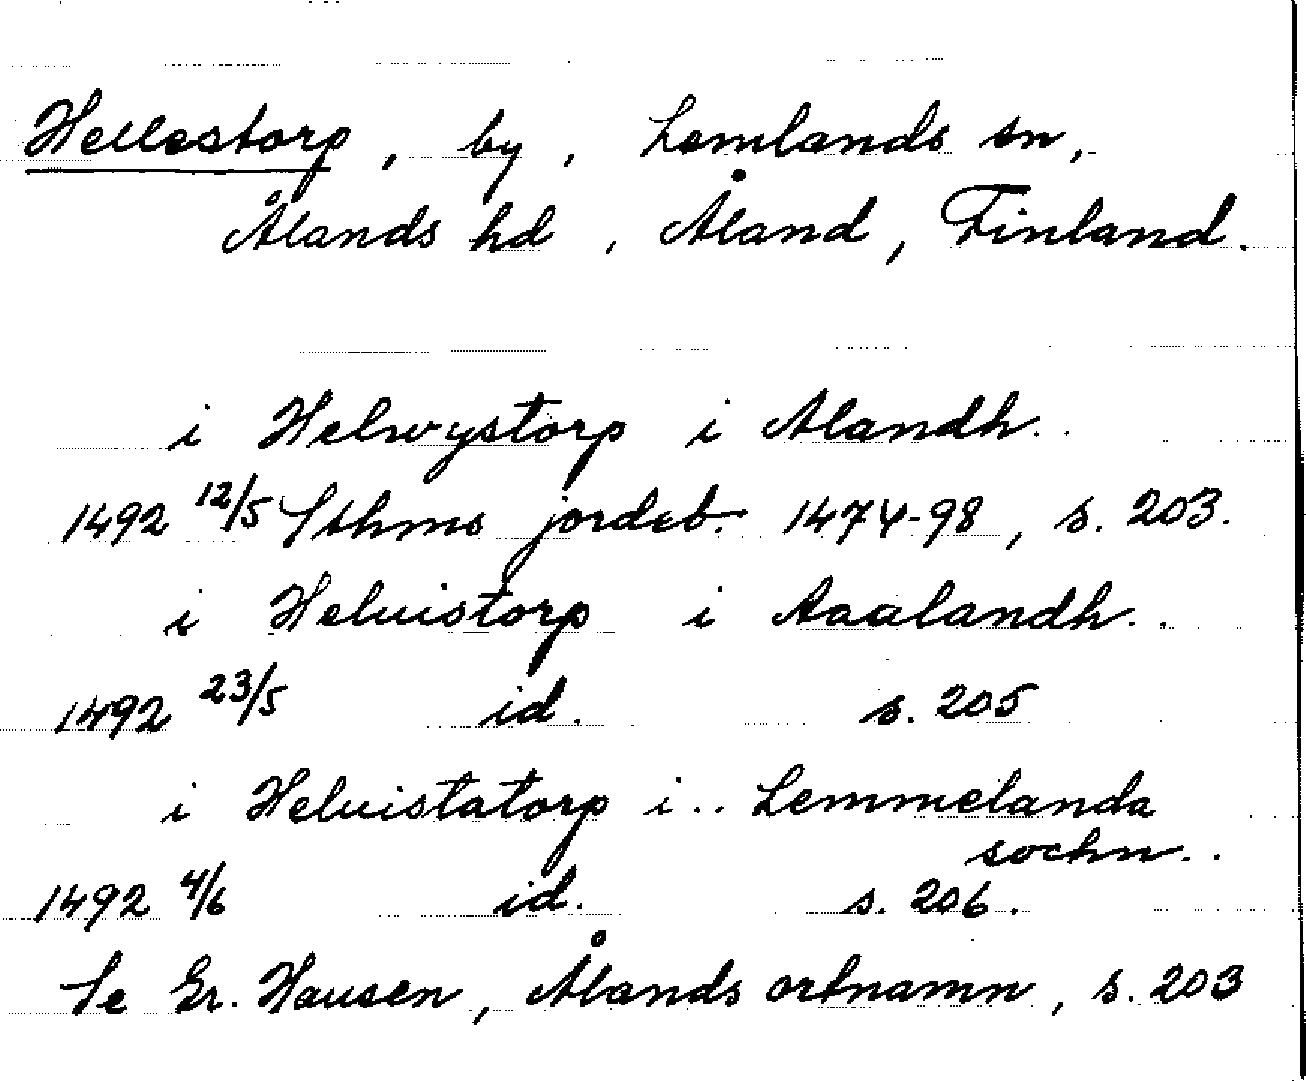 Hellestorp, by, Lemlands sn,
Ålands hd, Åland, Finland.
i Helwystorp i Alandh..
1492 12/5 Sthms jordeb. 1474-98, s. 203.
i Heluistorp i Aaalandh..
1492 23/5 id. s. 205
i Heluistatorp i.. Lemmelanda
sochn..
1492 4/6 id. s. 206.
Se Gr. Hausen, Ålands ortnamn, s. 203